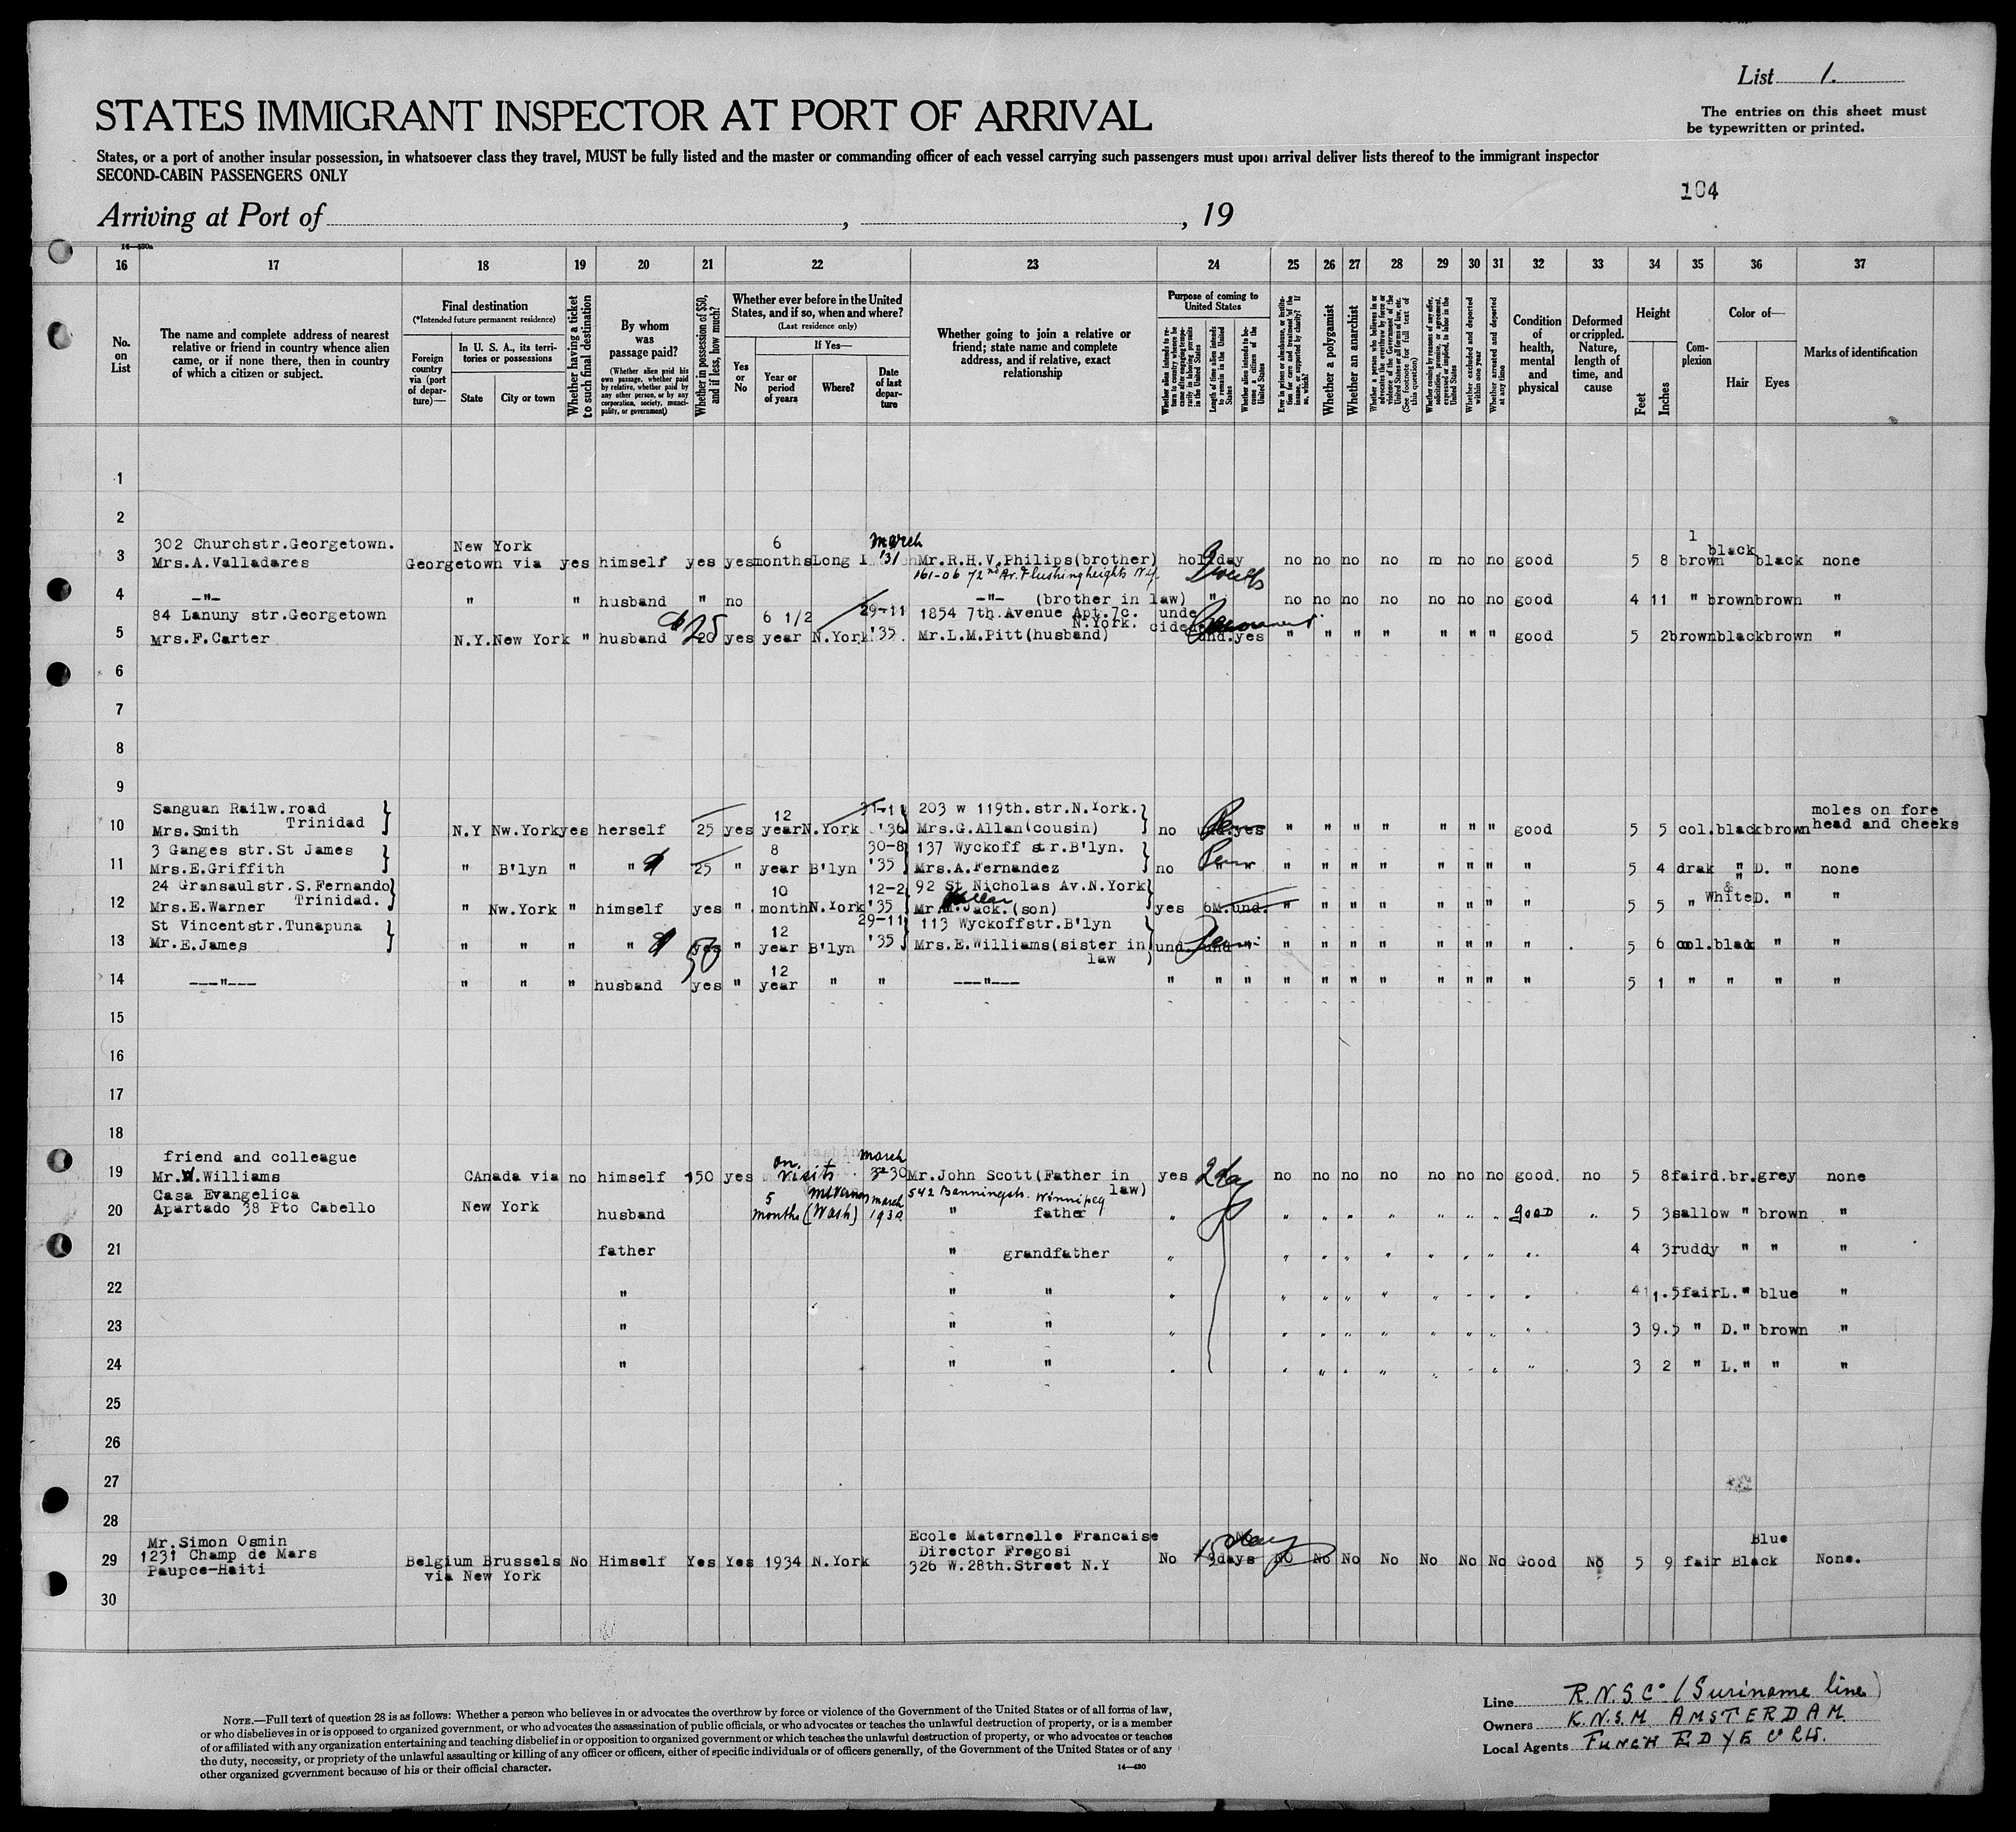 List 1.
STATES IMMIGRANT INSPECTOR AT PORT OF ARRIVAL
The entries on this sheet must
be typewritten or printed.
States, or a port of another insular possession, in whatsoever class they travel, MUST be fully listed and the master or commanding officer of each vessel carrying such passengers must upon arrival deliver lists thereof to the immigrant inspector
SECOND-CABIN PASSENGERS ONLY
104
Arriving at Port of , , 19
14—430a
16 17 18 19 20 21 22 23 24 25 26 27 28 29 30 31 32 33 34 35 36 37
No. on List
The name and complete address of nearest relative or friend in country whence alien came, or if none there, then in country of which a citizen or subject.
Final destination
(*Intended future permanent residence)
Foreign country via (port of departure)—
In U. S. A., its territories or possessions
State
City or town
Whether having a ticket to such final destination
By whom was passage paid?
(Whether alien paid his own passage, whether paid by relative, whether paid by any other person, or by any corporation, society, municipality, or government)
Whether in possession of $50, and if less, how much?
Whether ever before in the United States, and if so, when and where?
(Last residence only)
Yes or No
If Yes—
Year or period of years
Where?
Date of last departure
Whether going to join a relative or friend; state name and complete address, and if relative, exact relationship
Purpose of coming to United States
Whether alien intends to return to country whence he came after engaging temporarily in laboring pursuits in the United States
Length of time alien intends to remain in the United States
Whether alien intends to become a citizen of the United States
Ever in prison or almshouse, or institution for care and treatment of the insane, or supported by charity? If so, which?
Whether a polygamist
Whether an anarchist
Whether a person who believes in or advocates the overthrow by force or violence of the Government of the United States or all forms of law, etc. (See footnote for full text of this question)
Whether coming by reason of any offer, solicitation, promise, or agreement, expressed or implied, to labor in the United States
Whether excluded and deported within one year
Whether arrested and deported at any time
Condition of health, mental and physical
Deformed or crippled. Nature, length of time, and cause
Height
Feet
Inches
Complexion
Color of—
Hair
Eyes
Marks of identification
1
2
302 Churchstr.Georgetown. New York 6 March 1 black
3 Mrs.A.Valladares Georgetown via yes himself yes yes months Long I '31 Mr.R.H.V.Philips(brother) holiday no no no no m no no good 5 8 brown black none
161-06 72nd Av. Flushing heights N.Y.
4 —"— " " husband " no —"— (brother in law) " no no no no no no no good 4 11 " brown brown "
84 Lanuny str.Georgetown $25 6 1/2 29-11 1854 7th.Avenue Apt.7c.
N.York.
5 Mrs.F.Carter N.Y. New York " husband 20 yes year N.York '35. Mr.L.M.Pitt(husband) und. yes " " " " " " " good 5 2 brown black brown "
6
7
8
9
Sanguan Railw.road 12 203 w 119th.str.N.York. moles on fore
Trinidad
10 Mrs.Smith N.Y Nw.York yes herself 25 yes year N.York '36 Mrs.G.Allan(cousin) no und. yes " " " " " " " good 5 5 col. black brown head and cheeks
3 Ganges str.St James 8 30-8 137 Wyckoff str.B'lyn.
11 Mrs.E.Griffith " B'lyn " " 25 " year B'lyn '35 Mrs.A.Fernandez no " " " " " " " " " " 5 4 drak " D. " none
24 Gransaulstr.S.Fernando 10 12-2 92 St Nicholas Av.N.York
Trinidad.
12 Mrs.E.Warner " Nw.York " himself yes " month N.York '35 Mr. Jack.(son) yes 6M. und. " " " " " " " " 5 5 " & White D. " "
St Vincentstr.Tunapuna 12 29-11 113 Wyckoffstr.B'lyn
13 Mr.E.James " " " " yes 50 " year B'lyn '35 Mrs.E.Williams(sister in und. und " " " " " " " " 5 6 col. black " "
law
14 ———"——— " " " husband yes " 12 year " " ———"——— " " " " " " " " " " " 5 1 " " " "
15
16
17
18
friend and colleague on March
19 Mr.W.Williams CAnada via no himself 150 yes visits 30 Mr.John Scott(Father in yes 2 day no no no no no no no good. no 5 8 fair d.br. grey none
542 Banningstr. Winnipeg law)
Casa Evangelica
20 Apartado 38 Pto Cabello New York husband 5 months Mt Vernon (Wash) March 1930 " father " " " " " " " " good " 5 3 sallow " brown "
21 father " grandfather " " " " " " " " " 4 3 ruddy " " "
22 " " " " " " " " " " " " 4 1.5 fair L. " blue "
23 " " " " " " " " " " " " 3 9.5 " D. " brown "
24 " " " " " " " " " " " " 3 2 " L. " " "
25
26
27
28
Mr.Simon Osmin Ecole Maternelle Francaise No Blue
1231 Champ de Mars Director Fregosi 15 day
29 Paupce-Haiti Belgium Brussels No Himself Yes Yes 1934 N.York 326 W.28th.Street N.Y No days No No No No No No No Good No 5 9 fair Black None.
via New York
30
NOTE.—Full text of question 28 is as follows: Whether a person who believes in or advocates the overthrow by force or violence of the Government of the United States or of all forms of law,
or who disbelieves in or is opposed to organized government, or who advocates the assassination of public officials, or who advocates or teaches the unlawful destruction of property, or is a member
of or affiliated with any organization entertaining and teaching disbelief in or opposition to organized government or which teaches the unlawful destruction of property, or who advocates or teaches
the duty, necessity, or propriety of the unlawful assaulting or killing of any officer or officers, either of specific individuals or of officers generally, of the Government of the United States or of any
other organized government because of his or their official character.
14—430
Line R.N.S.Co (Suriname line)
Owners K.N.S.M. AMSTERDAM
Local Agents FUNCH EDYE & Co